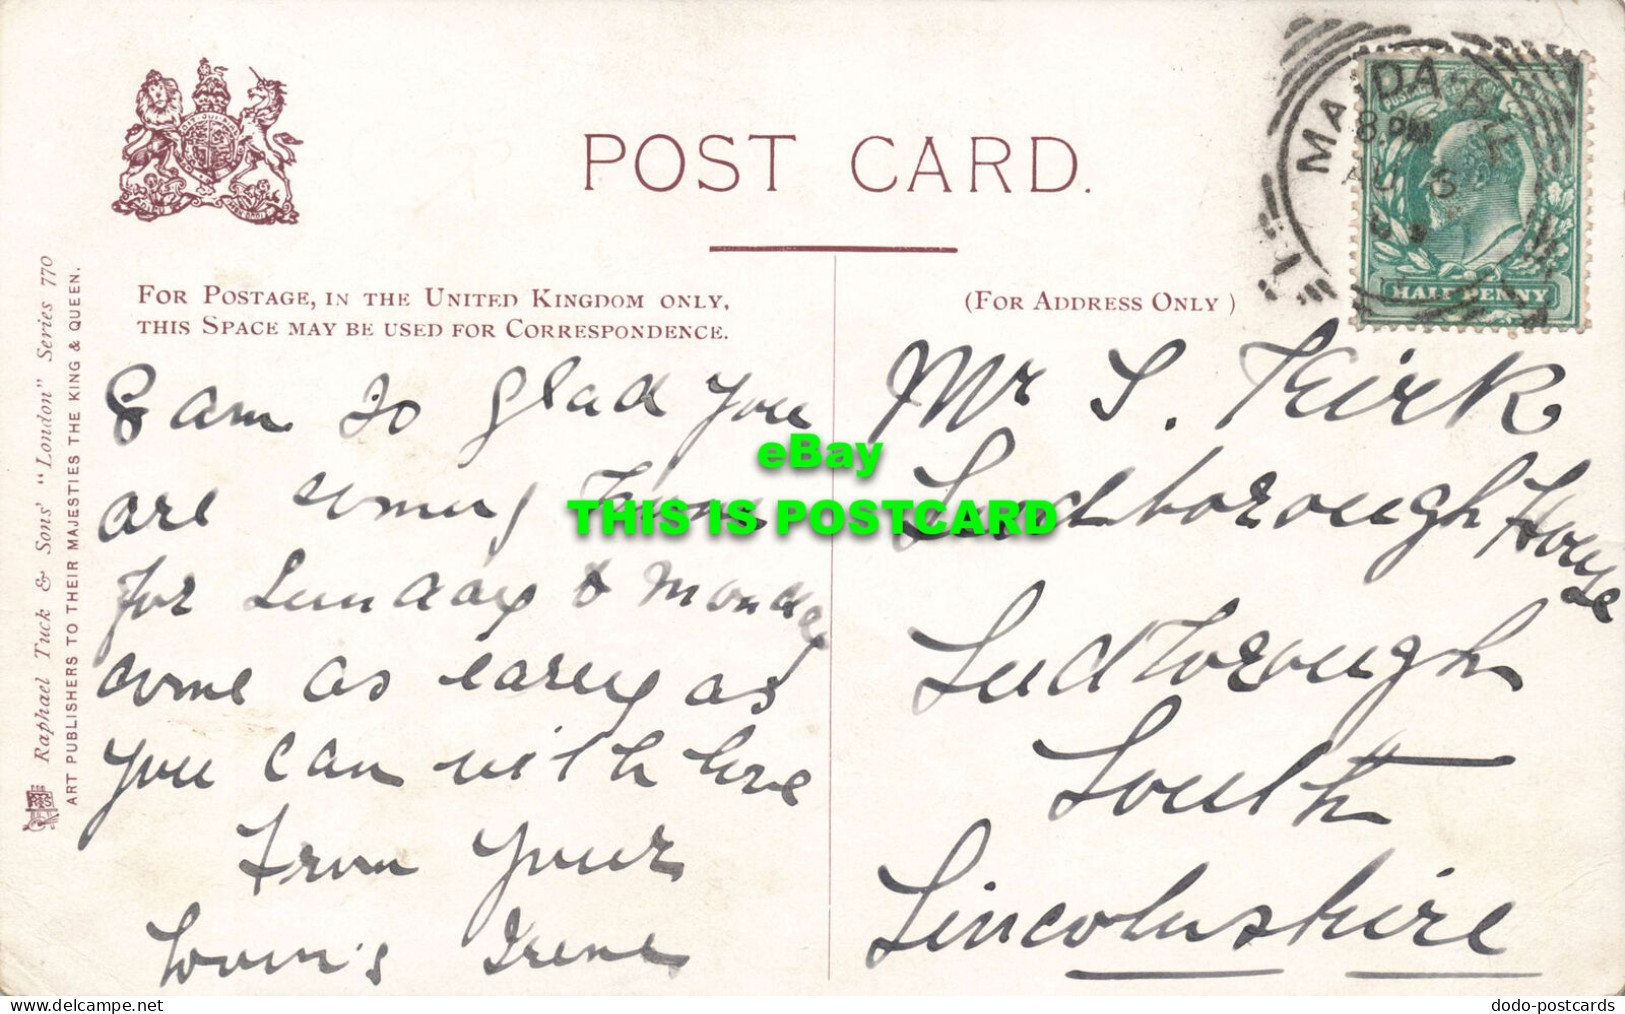 POST CARD.
FOR POSTAGE, IN THE UNITED KINGDOM ONLY,
THIS SPACE MAY BE USED FOR CORRESPONDENCE.
(FOR ADDRESS ONLY)
Raphael Tuck & Sons' "London" Series 770
ART PUBLISHERS TO THEIR MAJESTIES THE KING & QUEEN.
MAIDA HILL
8. PM
AU 6
HALF PENNY
I am so glad you
are coming home
for Sunday & Monday
come as early as
you can with love
From your
lovin's Irene
Mr S. Kirk
Ludborough House
Ludborough
Louth
Lincolnshire
eBay
THIS IS POSTCARD
delcampe.net
dodo-postcards